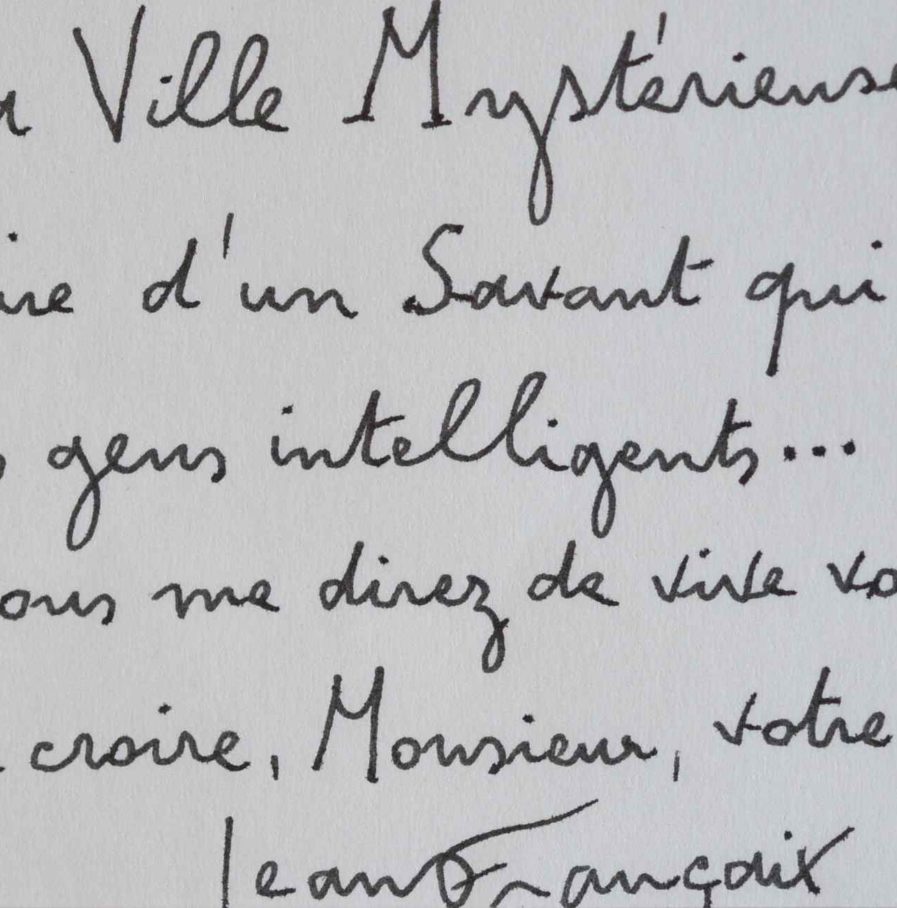 Ville Mystérieuse
d'un Savant qui
gens intelligents...
ous me direz de vive vo
croire, Monsieur, votre
Jean Françaix